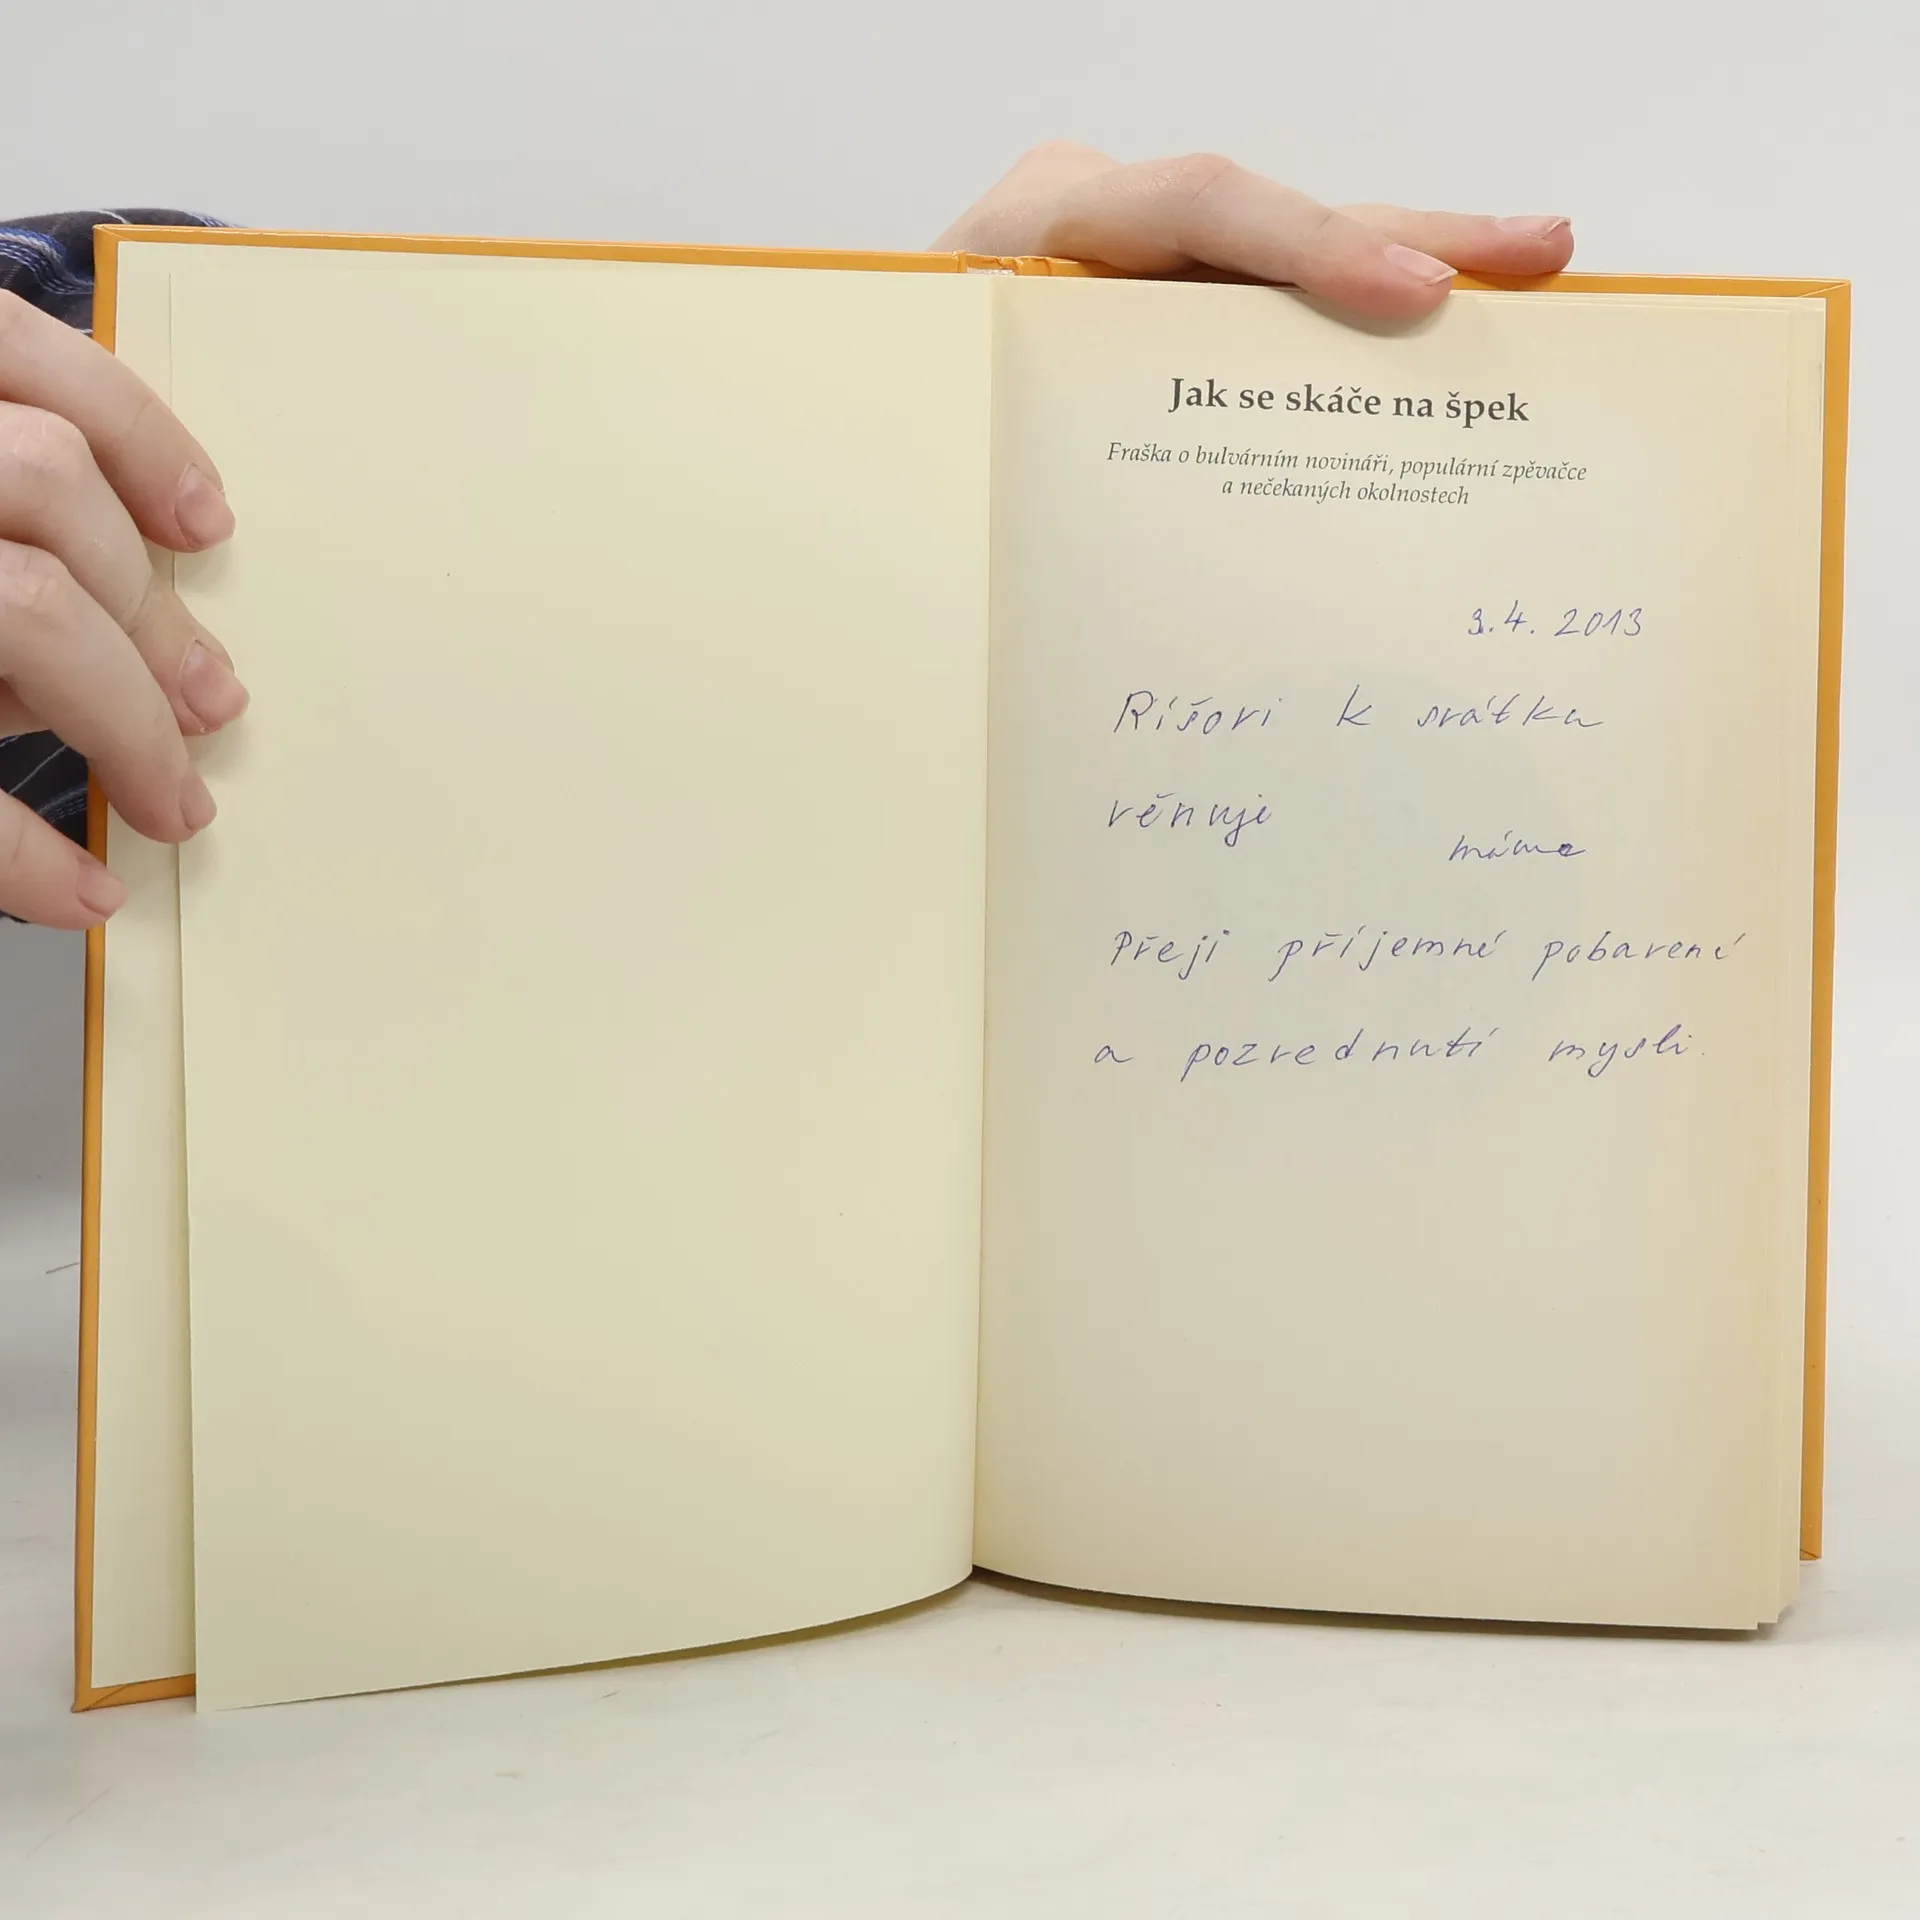 Jak se skáče na špek
Fraška o bulvárním novináři, populární zpěvačce
a nečekaných okolnostech
3.4. 2013
Ríšovi k svátku
věnuje
máma
Přeji příjemné pobavení
a pozvednutí mysli.